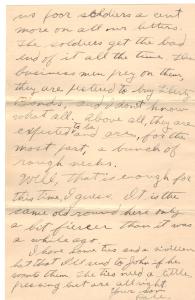 us poor soldiers a cent
more on all our letters.
The soldiers get the bad
end of it all the time. The
business men prey on them,
they are pestered to buy Liberty
Bonds, and I don't know
what all. Above all, they are
expected to be and are, for the
most part, a bunch of
rough necks.
Well, that is enough for
this time, I guess. It is the
same old round here only
a bit fiercer than it was
a while ago.
I have some ties and a
hat that I'll send to John if he
wants them. The ties need a little
pressing but are all right.
Your son